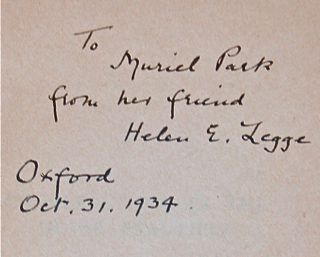 To
Muriel Park
from her friend
Helen E. Legge
Oxford
Oct. 31. 1934.